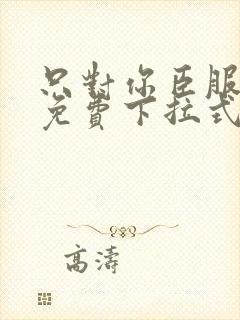 只對你臣服
免費下拉式
高濤